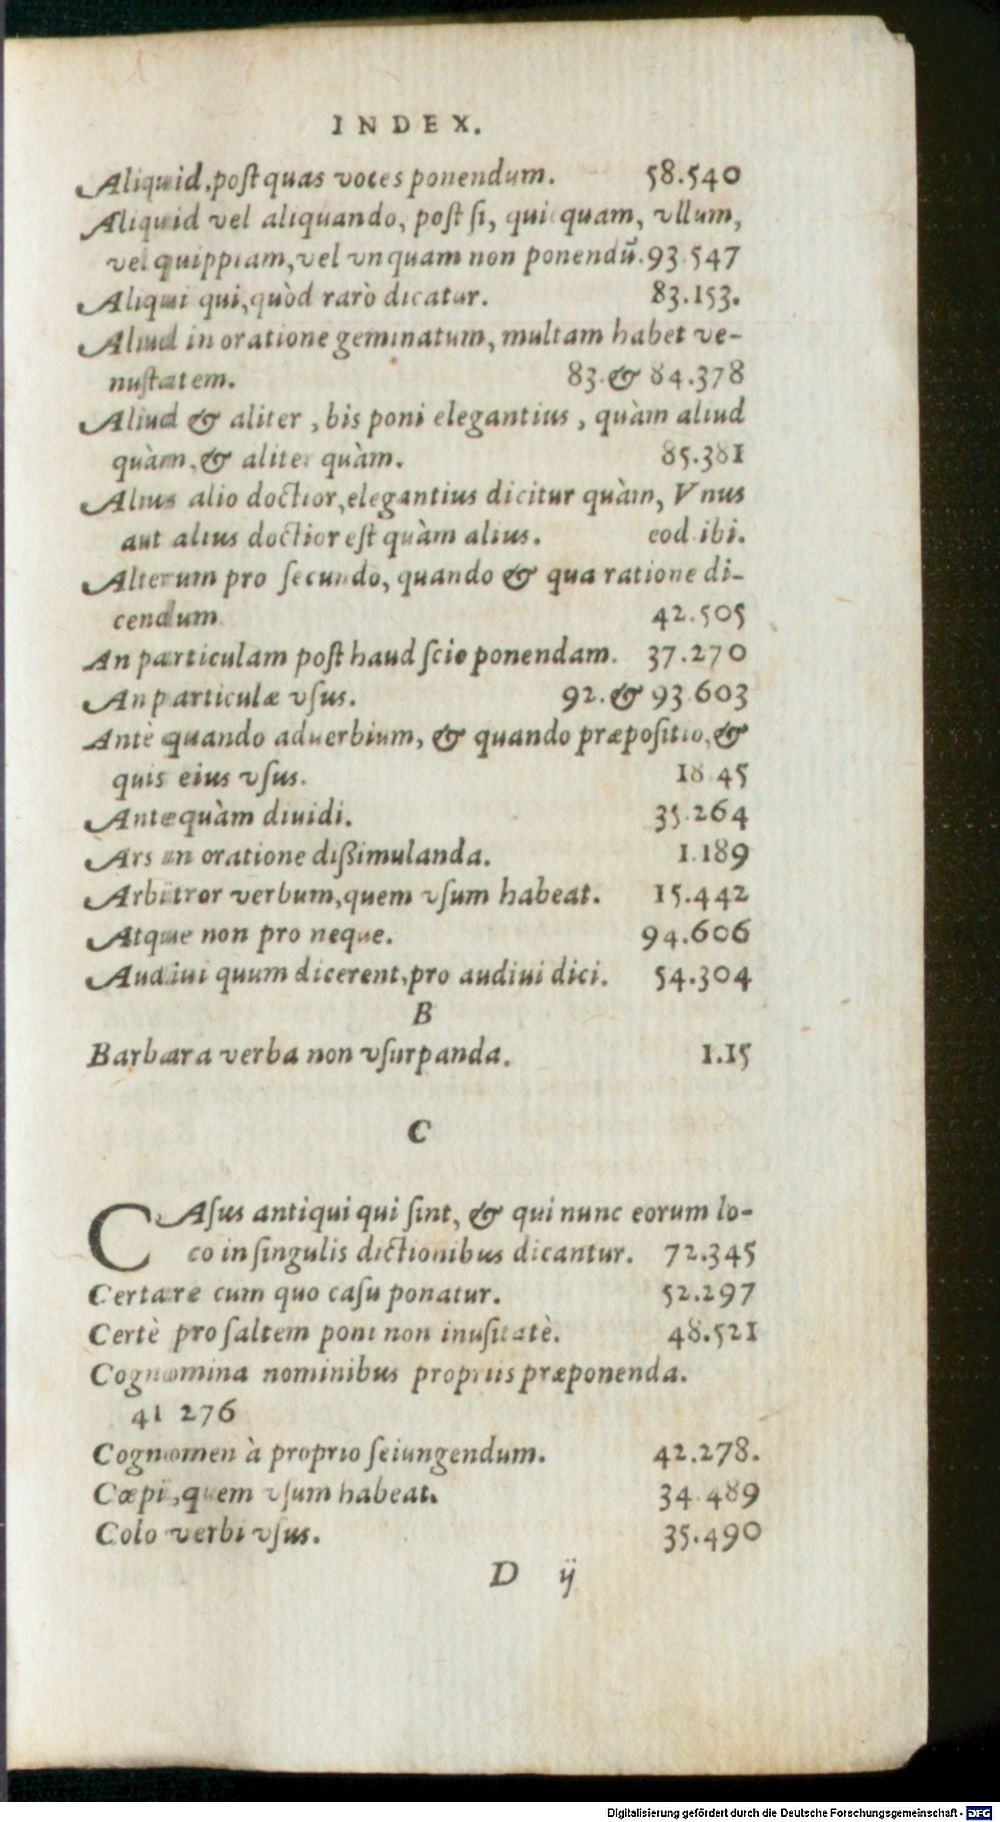 INDEX.
Aliquid, poſt quas voces ponendum. 58.540
Aliquid vel aliquando, poſt ſi, quicquam, vllum,
vel quippiam, vel vnquam non ponendū. 93.547
Aliqui qui, quòd rarò dicatur. 83.153.
Aliud in oratione geminatum, multam habet ve-
nuſtatem. 83. & 84.378
Aliud & aliter, bis poni elegantius, quàm aliud
quàm, & aliter quàm. 85.381
Alius alio doctior, elegantius dicitur quàm, Vnus
aut alius doctior eſt quàm alius. eod. ibi.
Alterum pro ſecundo, quando & qua ratione di-
cendum. 42.505
An particulam poſt haud ſcio ponendam. 37.270
An particulæ vſus. 92. & 93.603
Antè quando aduerbium, & quando præpoſitio, &
quis eius vſus. 18.45
Antequàm diuidi. 35.264
Ars in oratione dißimulanda. 1.189
Arbitror verbum, quem vſum habeat. 15.442
Atque non pro neque. 94.606
Audiui quum dicerent, pro audiui dici. 54.304
B
Barbara verba non vſurpanda. 1.15
C
CAſus antiqui qui ſint, & qui nunc eorum lo-
co in ſingulis dictionibus dicantur. 72.345
Certare cum quo caſu ponatur. 52.297
Certè pro ſaltem poni non inuſitatè. 48.521
Cognomina nominibus propriis præponenda.
41 276
Cognomen à proprio ſeiungendum. 42.278.
Cœpi, quem vſum habeat. 34.489
Colo verbi vſus. 35.490
D ij
Digitalisierung gefördert durch die Deutsche Forschungsgemeinschaft - DFG